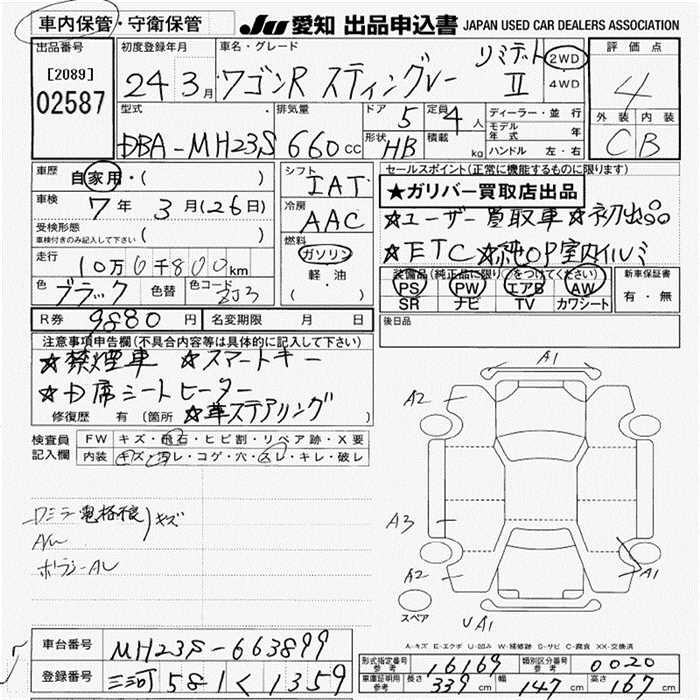 車内保管・守衛保管 JU 愛知 出品申込書 JAPAN USED CAR DEALERS ASSOCIATION
出品番号 初度登録年月 車名・グレード 評価点
[2089] 24 3月 ワゴンR スティングレー リミテット Ⅱ 2WD・4WD 4
02587
型式 排気量 ドア 定員 ディーラー・並行 外装 内装
DBA-MH23S 660cc 5 4人 モデル年式 年 C B
形状 HB 積載 kg ハンドル 左・右
車歴 自家用・( ) シフト IAT セールスポイント(正常に機能するものに限ります)
車検 7年3月(26日) 冷房 AAC ★ガリバー買取店出品
受検形態 ☆ユーザー買取車☆初出品
車検付きのみ記入して下さい ( ) 燃料 ☆ETC☆純OP室内イルミ
走行 10万6千800km ガソリン・軽油・( ) 装備品(純正品に限り○をつけてください) 新車保証書
色 ブラック 色替 色コード ZJ3 PS・PW・エアB・AW 有・無
SR ナビ TV カワシート
R券 9880円 名変期限 月 日 後日品
注意事項申告欄(不具合内容等は具体的に記入して下さい)
☆禁煙車 ☆スマートキー
☆D席シートヒーター
修復歴 有(箇所 ☆革ステアリング )
検査員 FW キズ・飛石・ヒビ割・リペア跡・X要
記入欄 内装 キズ・汚レ・コゲ・穴・スレ・キレ・破レ
A1
A2
Dミラー電格不良 キズ
A3
A2 A1
スペア UA1
A-キズ E-エクボ U-凹み W-補修跡 S-サビ C-腐食 XX-交換済
車台番号 MH23S-663899
登録番号 三河 581 く 1359
形式指定番号 参考 16169 類別区分番号 参考 0020
車庫証明用 参考 長さ 339cm 幅 147cm 高さ 167cm